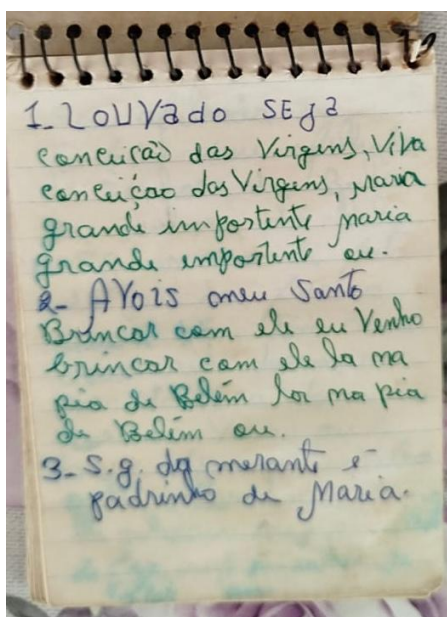 1. LOUVado SEJa
conceicão das Virgens, Viva
conceiçao das Virgens, Maria
grande importente Maria
grande emportente ou.
2- AVOIS meu Santo
Brincar com ele eu Venho
brincar com ele la na
pia de Belém lor na pia
de Belém ou.
3- S.g. da merante é
padrinho de Maria.